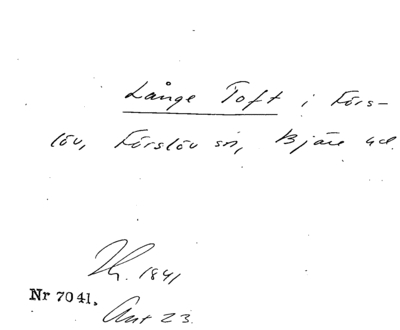 Långe Toft i Förs-
löv, Förslöv sn, Bjäre hd.
Th. 1841
Nr 7041.
Ant 23.